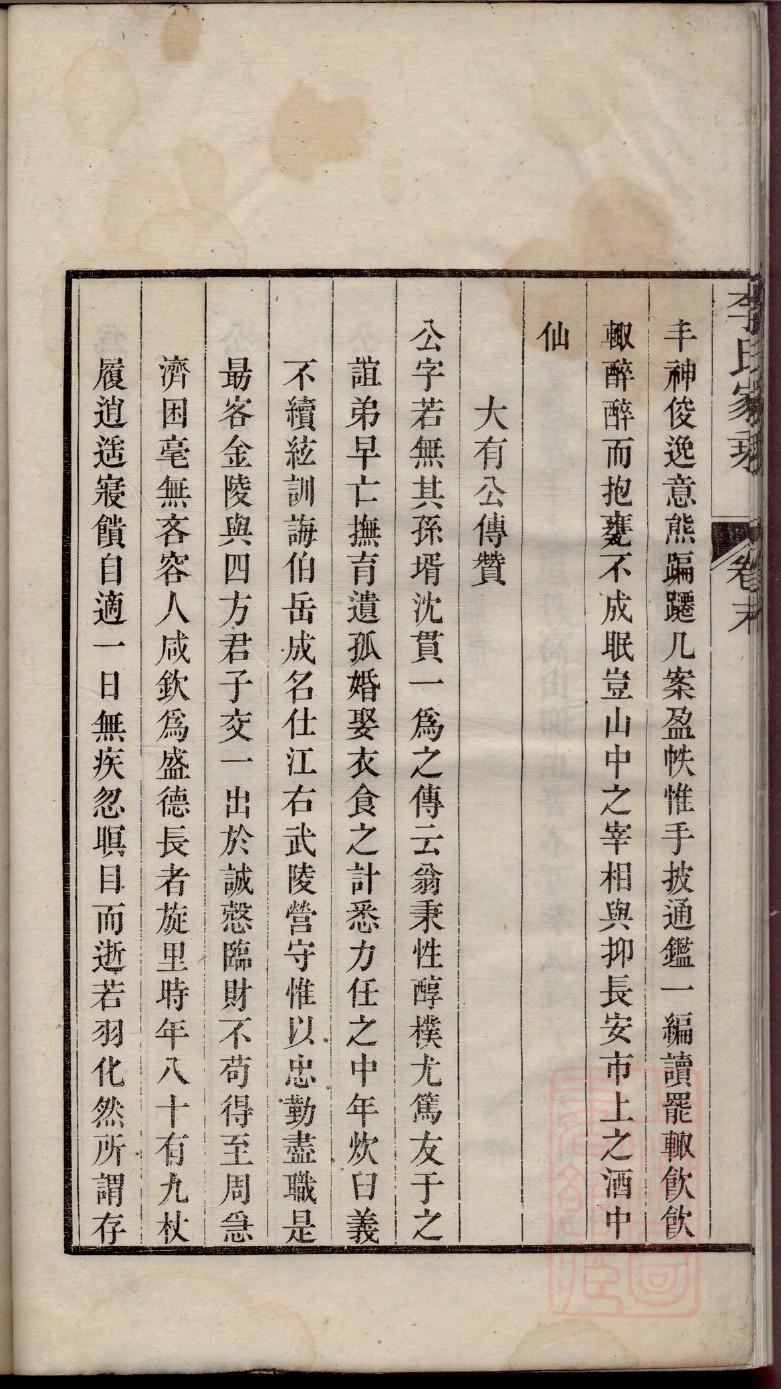 李氏家乘 卷末
丰神俊逸意態蹁躚几案盈帙惟手披通鑑一編讀罷輙飲飲
輙醉醉而抱甕不成眠豈山中之宰相與抑長安市上之酒中
仙
大有公傳贊
公字若無其孫壻沈貫一爲之傳云翁秉性醇樸尤篤友于之
誼弟早亡撫育遺孤婚娶衣食之計悉力任之中年炊臼義
不續絃訓誨伯岳成名仕江右武陵營守惟以忠勤盡職是
朂客金陵與四方君子交一出於誠慤臨財不苟得至周急
濟困毫無吝容人咸欽爲盛德長者旋里時年八十有九杖
履逍遥寢饋自適一日無疾忽瞑目而逝若羽化然所謂存